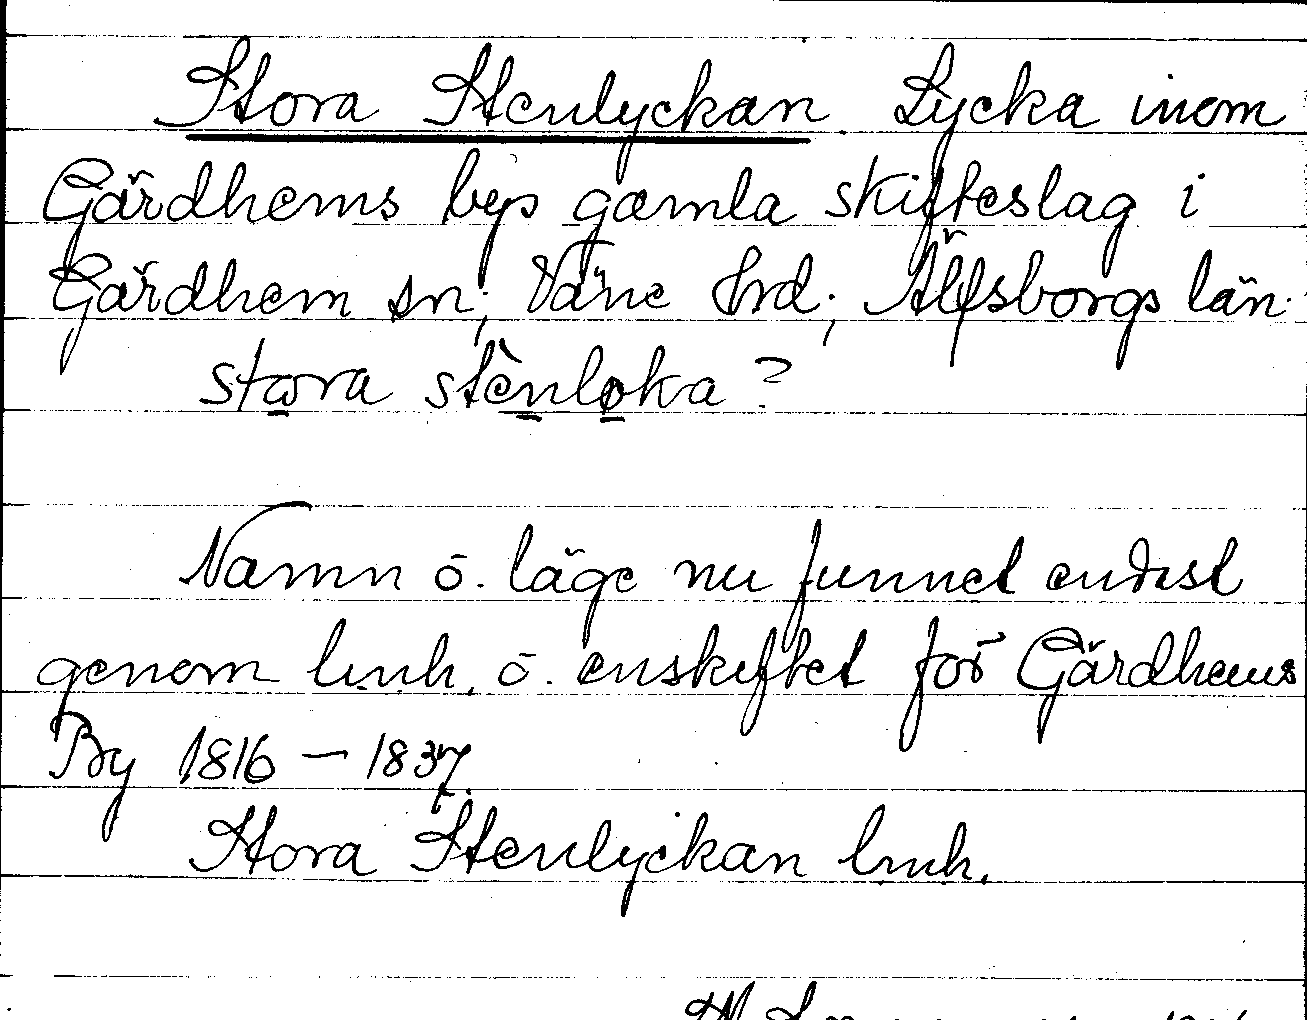 Stora Stenlyckan. Lycka inom
Gärdhems bys gamla skifteslag i
Gärdhem sn; Väne hrd; Älfsborgs län.
stora stènloka?
Namn o. läge nu funnet endast
genom lmh. o. enskiftet för Gärdhems
By 1816 – 1837.
Stora Stenlyckan lmh.